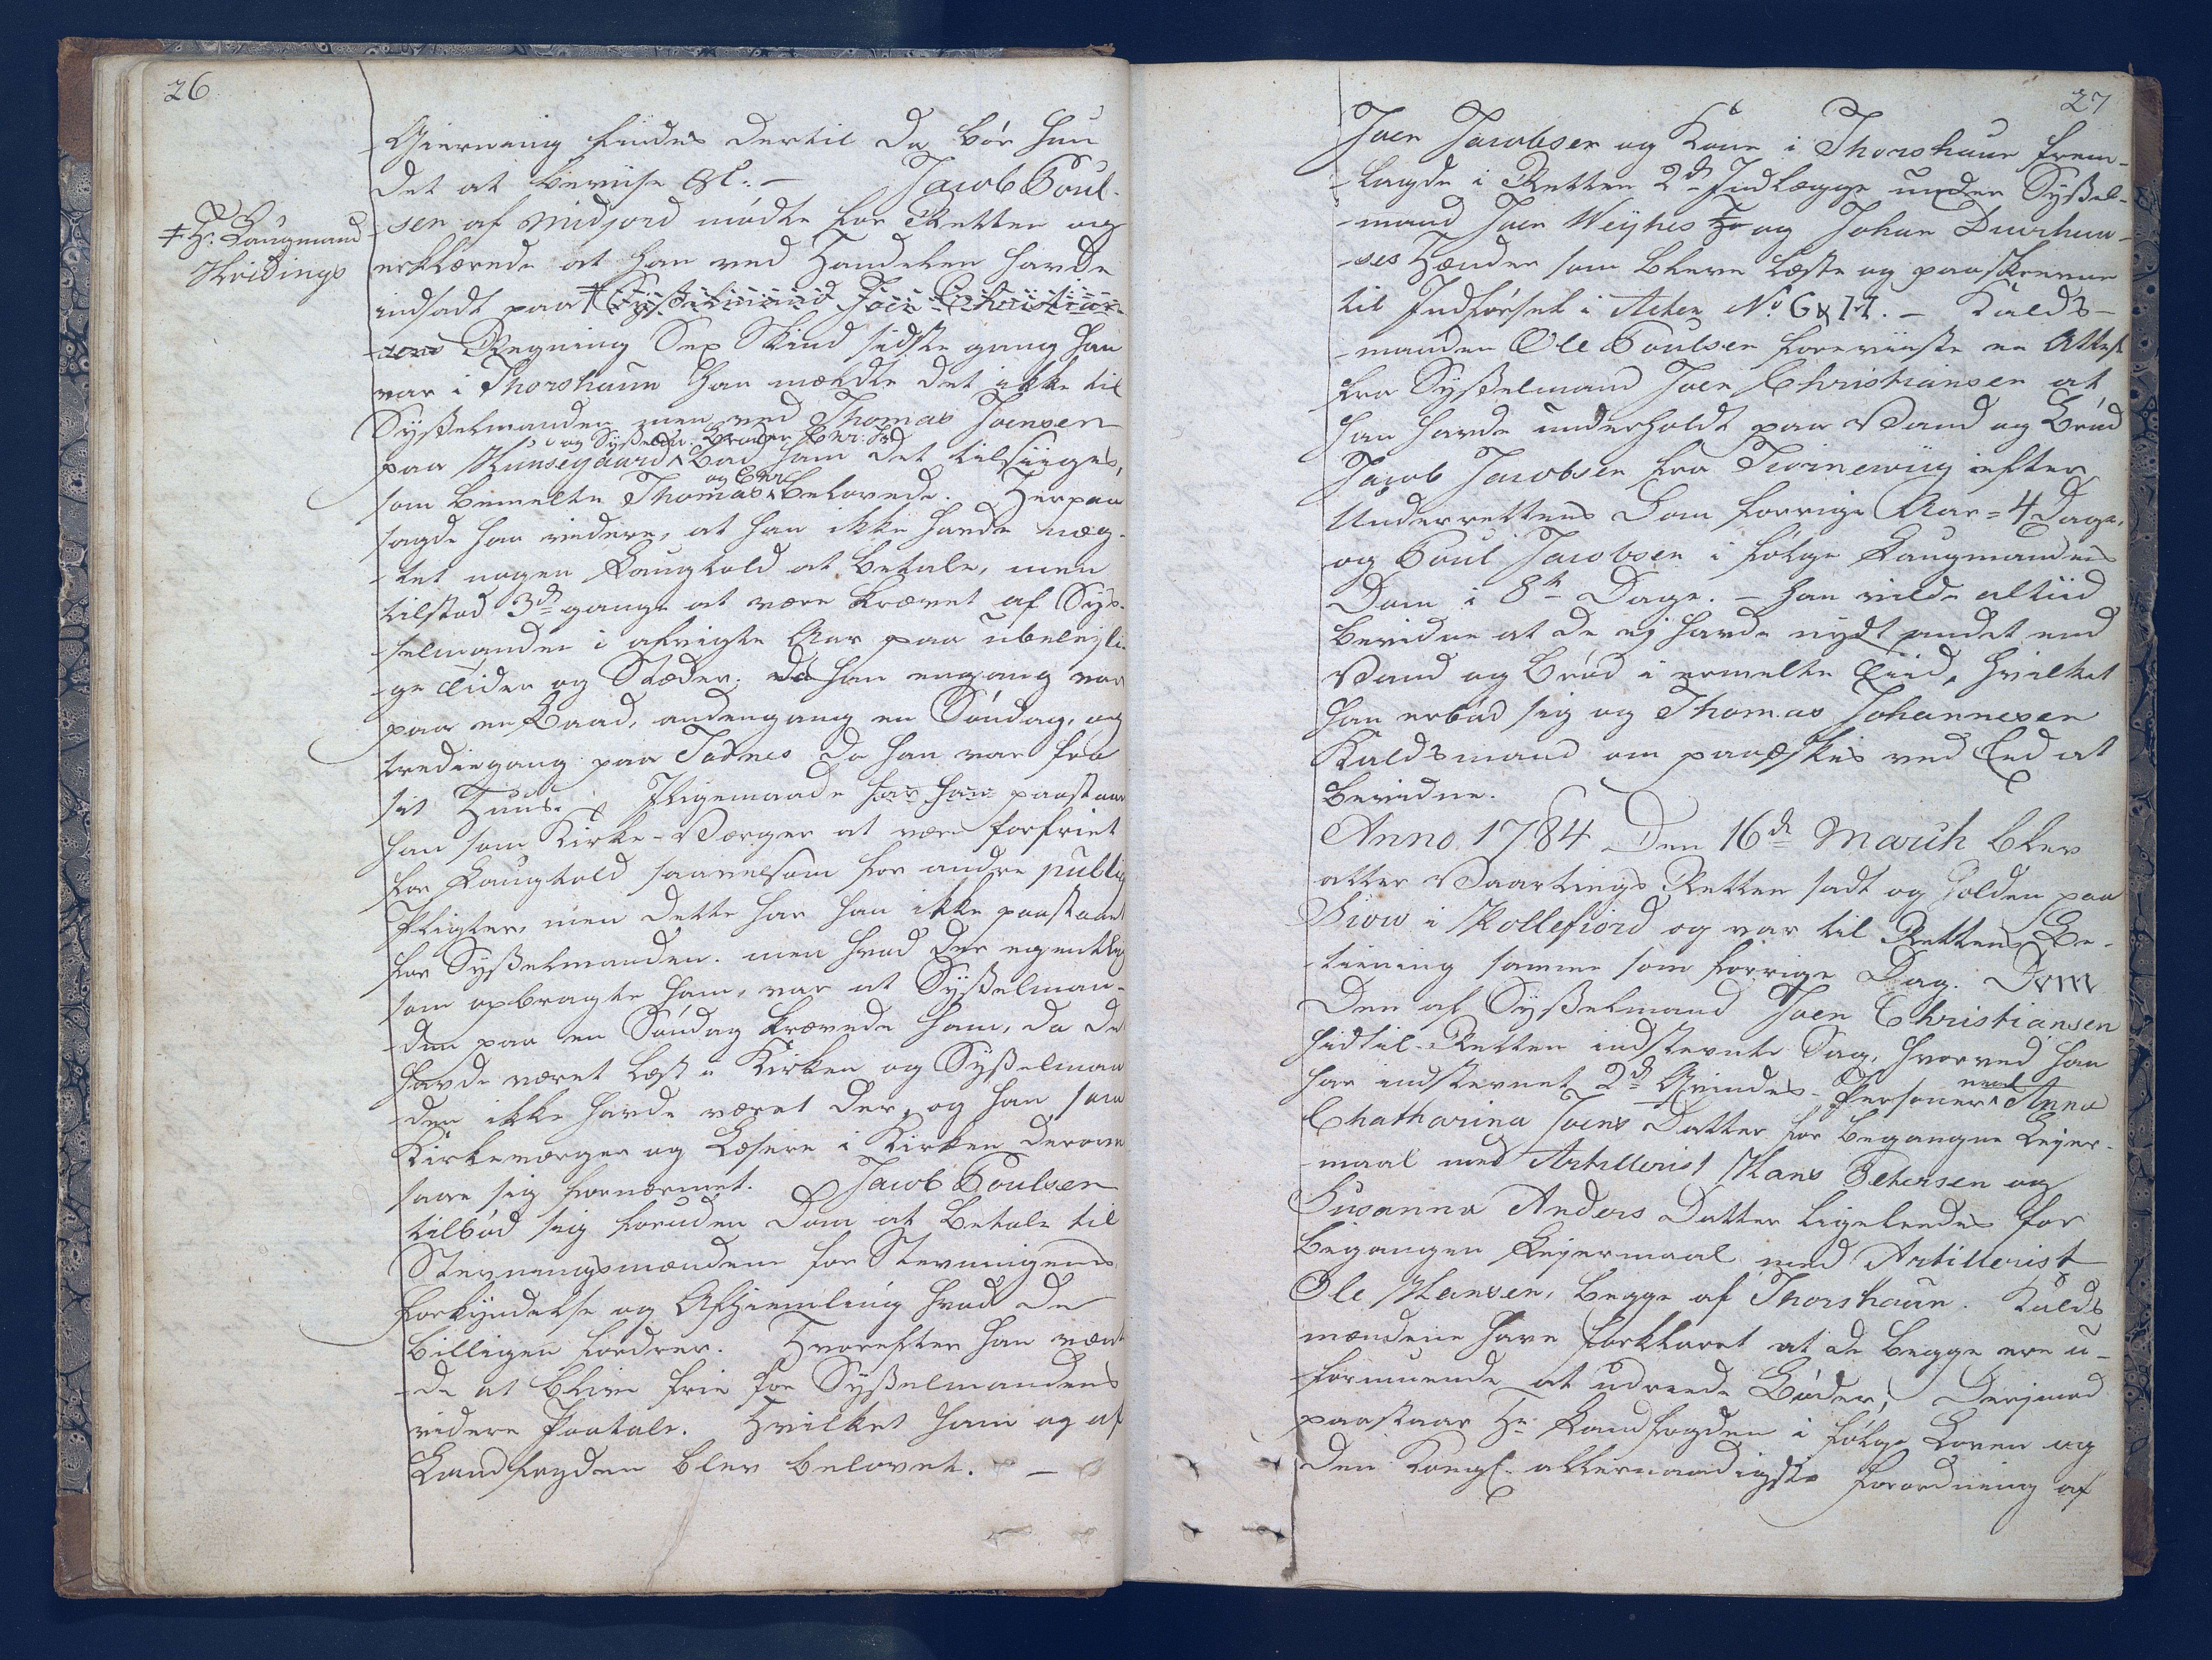 26
Gierning findes dertil da bør hun
det at beviise &c:- Jacob Poul-
sen af Midjord mødte for Retten og
erklærede at han ved Handelen havde
indsadt paa ‡ Sysselmand Joen Christian-
sens Regning Sex Skind sidste gang han
var i Thorshaun han meldte det ikke til
Sysselmanden men ved Thomas Joensen
og Sysselm: Broder
paa Hunsegaard bad ham det tilsiiges,
og Chr:
som bemelte Thomas belovede. Herpaa
sagde han videre, at han ikke havde næg-
-tet nogen Laugtold at betale, men
tilstod 3de gange at være krævet af Sys-
-selmanden i afvigte Aar paa ubelejli-
-ge Tider og Stæder. da han engang var
paa en Baad, andengang en Søndag, og
trediegang paa Tornes da han var fra
sit Huus. Ligemaade har han paastaaet
han som Kirke-Værger at være forfriet
for Laugtold saavelsom for andre public
Pligter, men dette har han ikke paastaaet
for Sysselmanden. men hvad der egentlig
som opbragte ham, var at Sysselman-
-den paa en Søndag krævede ham, da de
havde været læst i Kirken og Sysselman
-den ikke havde været der, og han som
Kirkeværger og Læsere i Kirken derover
saae sig fornærmet. Jacob Poulsen
tilbød sig foruden Dom at betale til
Stevningsmændene for Stevningens
forkyndelse og Afhiemling hvad de
billigen fordrer. Hvorefter han vent
-de at blive frie for Sysselmandens
videre Paatale. Hvilket ham og af
Landfogden blev belovet. —
‡ Hr: Laugmand
Hvidings
27
Joen Jacobsen og Kone i Thorshaun frem-
-lagde i Retten 2de Indlægge under Syssel-
-mand Joen Weyhes Hr og Johan Duurhuu-
-ses Hænder som bleve læste og paaskrevne
til Indførsel i Acten No G & H. - Kalds-
-manden Ole Poulsen foreviiste en Attest
fra Sysselmand Joen Christiansen at
han havde underholdt paa Vand og Brød
Jacob Jacobsen fra Tiørnewiig efter
Underrettens Dom forrige Aar = 4 Dage,
og Poul Jacobsen i følge Laugmandens
Dom i 8te Dage. - han vilde altiid
bevidne at de ej havde nydt andet end
Vand og Brød i ermelte Tiid, hvilket
han erbød sig og Thomas Johannesen
Kaldsmand om paaæskes ved Eed at
bevidne.
Anno 1784 Den 16de Martii blev
atter Vaartings Retten sadt og holden paa
Siow i Kollefiord og var til Rettens Be-
-tiening samme som forrige Dag. Dom
Den af Sysselmand Joen Christiansen
hidtil Retten indstevnte Sag, hvorved han
har indstevnet 2de Qvindes-Personer
nml Anna
Chatharina Joens Datter for begangne Lejer-
-maal med Artillerist Hans Petersen og
Susanna Anders Datter ligeledes for
begangen Lejermaal med Artillerist
Ole Hansen, begge af Thorshaun. Kalds
mændene have forklaret at de begge ere u-
-formuende at udreede Bøder; Derimod
paastaar Hr Landfogden i følge Loven og
den Kongl: allernaadigste Forordning af